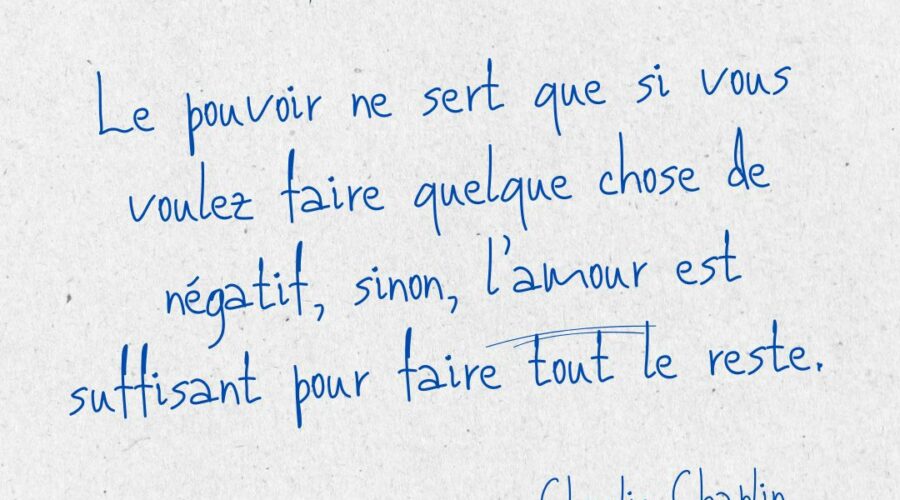 Le pouvoir ne sert que si vous
voulez faire quelque chose de
négatif, sinon, l'amour est
suffisant pour faire tout le reste.
Charlie Chaplin